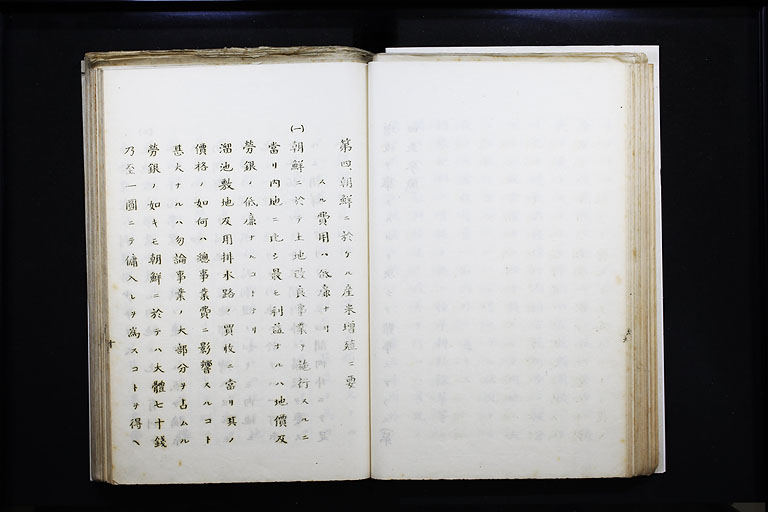 第四、朝鮮ニ於ケル産米増殖ニ要
スル費用ハ低廉ナリ
(一)朝鮮ニ於テ土地改良事業ヲ施行スルニ
當リ内地ニ比シ最モ利益ナルハ地價及
勞銀ノ低廉ナルコトナリ
溜池敷地及用排水路ノ買收ニ當リ其ノ
價格ノ如何ハ總事業費ニ影響スルコト
甚大ナルハ勿論事業ノ大部分ヲ占ムル
勞銀ノ如キモ朝鮮ニ於テハ大體七十錢
乃至一圓ニテ傭入レヲ爲スコトヲ得ヘ